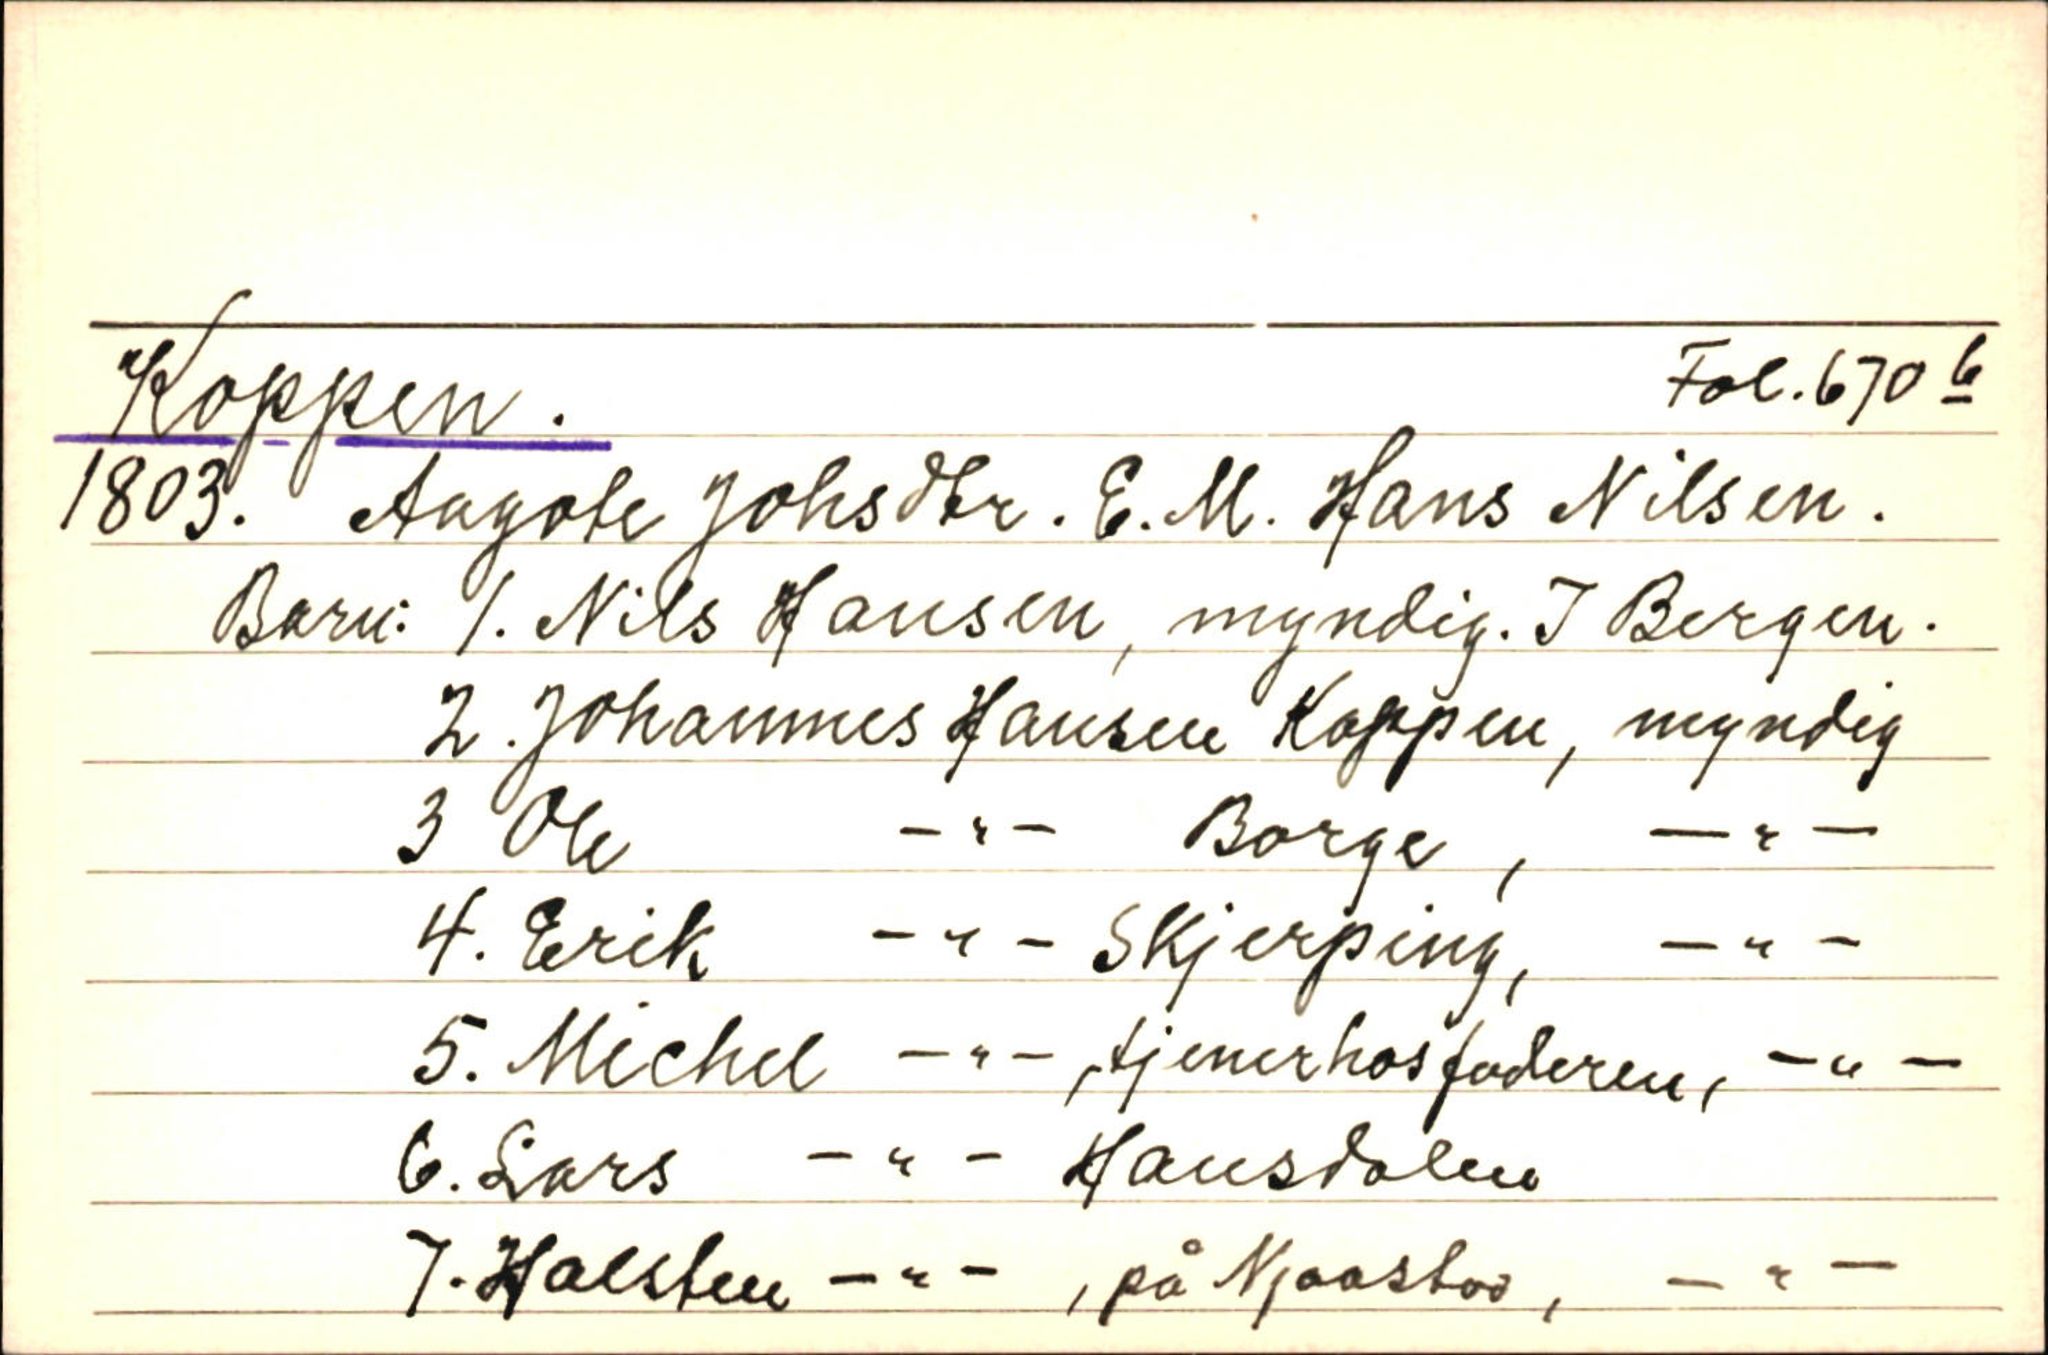 Koppen. Fol. 670 b
1803. Aagote Johsdtr. E. M. Hans Nilsen.
Barn: 1. Nils Hansen, myndig. I Bergen.
2. Johannes Hansen Koppen, myndig
3 Ole -"- Borge, -"-
4. Erik -"- Skjerping, -"-
5. Michel -"-, tjener hos faderen, -"-
6. Lars -"- Hausdalen
7. Halsten -"-, på Njaastad, -"-